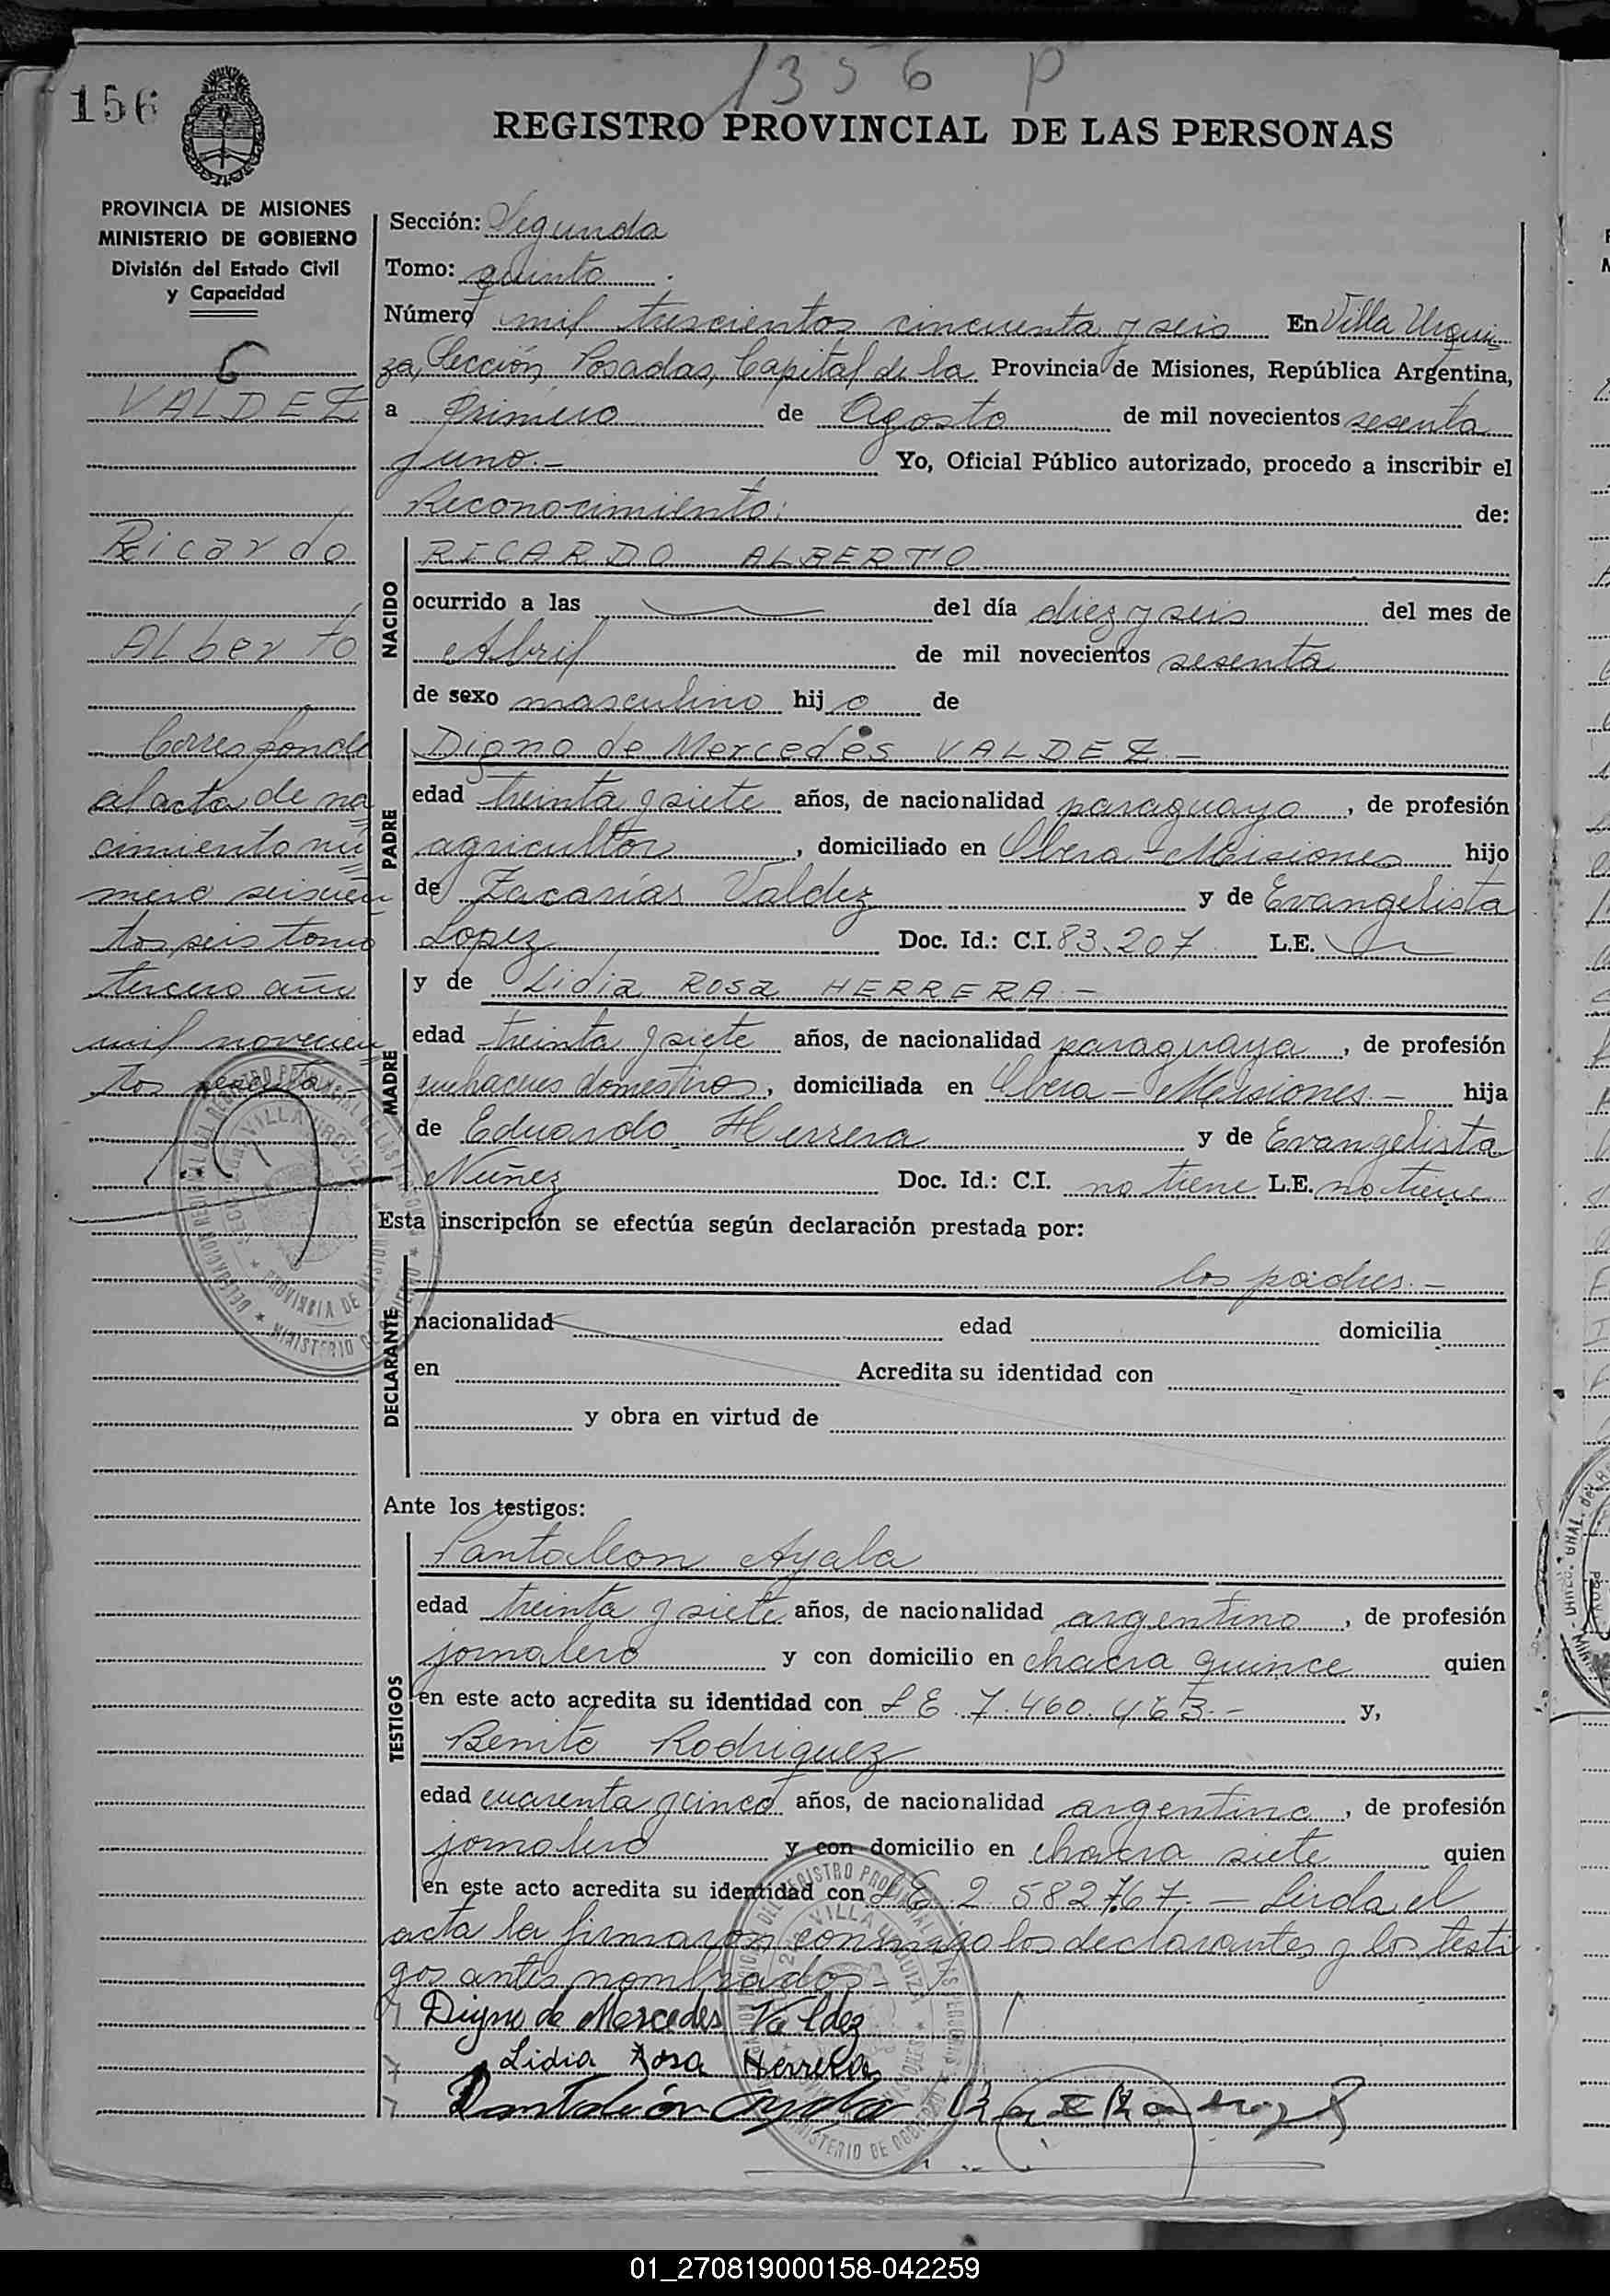 1356 P
156
REGISTRO PROVINCIAL DE LAS PERSONAS
PROVINCIA DE MISIONES
MINISTERIO DE GOBIERNO
División del Estado Civil
y Capacidad
6
VALDEZ
Ricardo
Alberto
Corresponde
al acta de na
cimiento nú
mero seiscien
tos seis tomo
tercero año
mil novecien
tos sesenta.-
Sección: Segunda
Tomo: quinto
Número mil trescientos cincuenta y seis En Villa Urqui
za, Sección Posadas, Capital de la Provincia de Misiones, República Argentina,
a Primero de Agosto de mil novecientos sesenta
y uno.- Yo, Oficial Público autorizado, procedo a inscribir el
Reconocimiento: de:
NACIDO
RICARDO ALBERTO
ocurrido a las del día diez y seis del mes de
Abril de mil novecientos sesenta
de sexo masculino hijo de
PADRE
Digno de Mercedes VALDEZ.-
edad treinta y siete años, de nacionalidad paraguayo, de profesión
agricultor, domiciliado en Obera - Misiones hijo
de Zacarías Valdez y de Evangelista
Lopez Doc. Id.: C.I. 83.207 L.E.
MADRE
y de Lidia Rosa HERRERA.-
edad treinta y siete años, de nacionalidad paraguaya, de profesión
quehaceres domesticos, domiciliada en Obera - Misiones.- hija
de Eduardo Herrera y de Evangelista
Nuñez Doc. Id.: C.I. no tiene L.E. no tiene
Esta inscripción se efectúa según declaración prestada por:
DECLARANTE
los padres.-
nacionalidad edad domicilia
en Acredita su identidad con
y obra en virtud de
Ante los testigos:
TESTIGOS
Pantaleon Ayala
edad treinta y siete años, de nacionalidad argentino, de profesión
jornalero y con domicilio en chacra quince quien
en este acto acredita su identidad con L E. 7.460.463.- y,
Benito Rodriguez
edad cuarenta y cinco años, de nacionalidad argentino, de profesión
jornalero y con domicilio en chacra siete quien
en este acto acredita su identidad con L E. 2.582.767.- Leida el
acta la firmaron conmigo los declarantes y los testi
gos antes nombrados.-
Digno de Mercedes Valdez
Lidia Rosa Herrera
Pantaleón Ayala
01_270819000158-042259